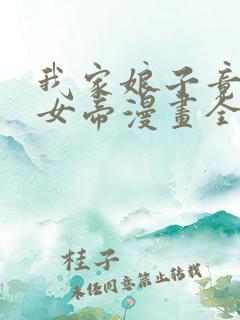 我家娘子竟
女帝漫畫全
桂子
未经同意禁止转载